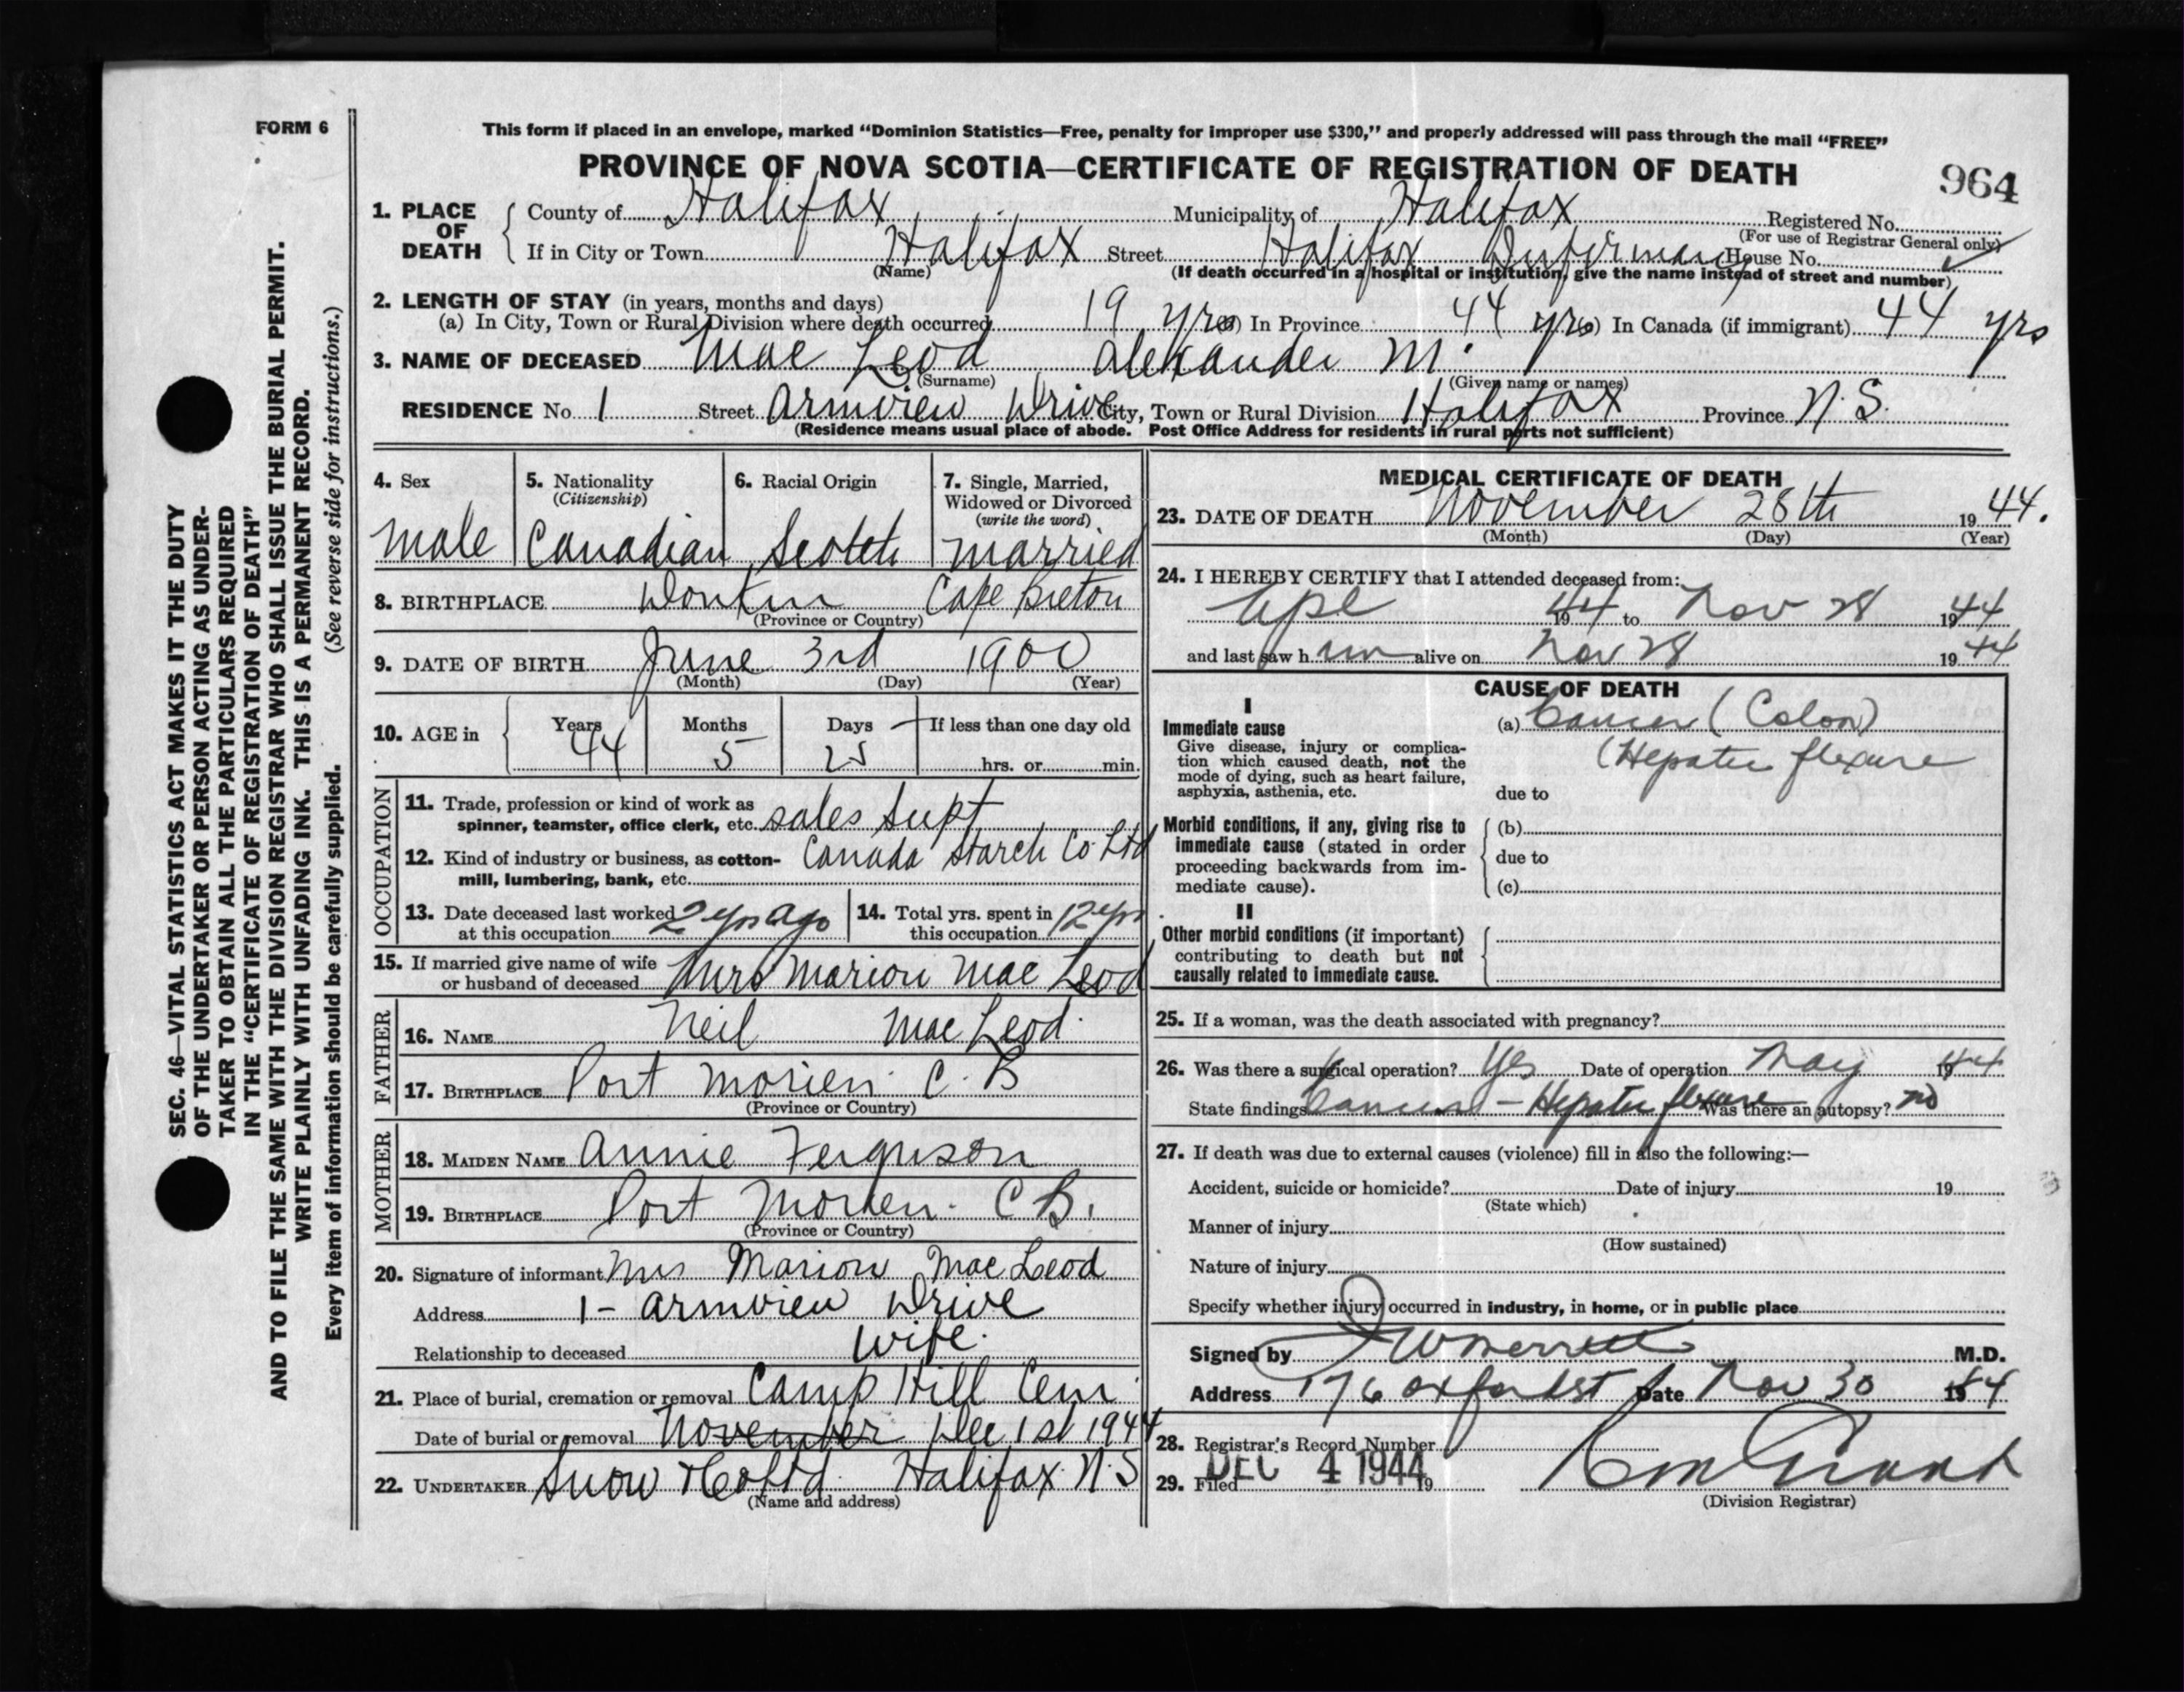 FORM 6
This form if placed in an envelope, marked "Dominion Statistics—Free, penalty for improper use $300," and properly addressed will pass through the mail "FREE"
PROVINCE OF NOVA SCOTIA—CERTIFICATE OF REGISTRATION OF DEATH
964
1. PLACE OF DEATH County of Halifax Municipality of Halifax Registered No.
(For use of Registrar General only)
If in City or Town Halifax Street Halifax Infirmary House No.
(Name) (If death occurred in a hospital or institution, give the name instead of street and number)
2. LENGTH OF STAY (in years, months and days)
(a) In City, Town or Rural Division where death occurred 19 yrs (b) In Province 44 yrs (c) In Canada (if immigrant) 44 yrs
3. NAME OF DECEASED Mac Leod Alexander M.
(Surname) (Given name or names)
RESIDENCE No 1 Street Armview Drive City, Town or Rural Division Halifax Province N.S.
(Residence means usual place of abode. Post Office Address for residents in rural parts not sufficient)
4. Sex 5. Nationality 6. Racial Origin 7. Single, Married,
(Citizenship) Widowed or Divorced
(write the word)
Male Canadian Scotch Married
8. BIRTHPLACE Donkin Cape Breton
(Province or Country)
9. DATE OF BIRTH June 3rd 1900
(Month) (Day) (Year)
10. AGE in Years Months Days If less than one day old
44 5 25 hrs. or min.
OCCUPATION
11. Trade, profession or kind of work as
spinner, teamster, office clerk, etc. Sales Supt
12. Kind of industry or business, as cotton- Canada Starch Co Ltd
mill, lumbering, bank, etc.
13. Date deceased last worked 2 yrs ago 14. Total yrs. spent in 12 yrs
at this occupation this occupation
15. If married give name of wife
or husband of deceased Mrs Marion Mac Leod
FATHER
16. NAME Neil Mac Leod
17. BIRTHPLACE Port Morien C.B
(Province or Country)
MOTHER
18. MAIDEN NAME Annie Ferguson
19. BIRTHPLACE Port Morien C B.
(Province or Country)
20. Signature of informant Mrs Marion Mac Leod
Address 1 - Armview Drive
Relationship to deceased Wife.
21. Place of burial, cremation or removal Camp Hill Cem
Date of burial or removal November Dec 1st 1944
22. UNDERTAKER Snow & Co Ltd. Halifax N.S
(Name and address)
MEDICAL CERTIFICATE OF DEATH
23. DATE OF DEATH November 28th 1944.
(Month) (Day) (Year)
24. I HEREBY CERTIFY that I attended deceased from:
Apl 1944 to Nov 28 1944
and last saw him alive on Nov 28 1944
CAUSE OF DEATH
I
Immediate cause (a) Cancer (Colon)
Give disease, injury or complica- (Hepatic flexure
tion which caused death, not the
mode of dying, such as heart failure,
asphyxia, asthenia, etc. due to
Morbid conditions, if any, giving rise to (b)
immediate cause (stated in order due to
proceeding backwards from im-
mediate cause). (c)
II
Other morbid conditions (if important)
contributing to death but not
causally related to immediate cause.
25. If a woman, was the death associated with pregnancy?
26. Was there a surgical operation? Yes Date of operation May 1944
State findings Cancer - Hepatic flexure Was there an autopsy? no
27. If death was due to external causes (violence) fill in also the following:—
Accident, suicide or homicide? Date of injury 19
(State which)
Manner of injury
(How sustained)
Nature of injury
Specify whether injury occurred in industry, in home, or in public place
Signed by M.D.
Address 176 Oxford St Date Nov 30 1944
28. Registrar's Record Number
29. Filed DEC 4 1944 19
(Division Registrar)
SEC. 46—VITAL STATISTICS ACT MAKES IT THE DUTY
OF THE UNDERTAKER OR PERSON ACTING AS UNDER-
TAKER TO OBTAIN ALL THE PARTICULARS REQUIRED
IN THE "CERTIFICATE OF REGISTRATION OF DEATH"
AND TO FILE THE SAME WITH THE DIVISION REGISTRAR WHO SHALL ISSUE THE BURIAL PERMIT.
WRITE PLAINLY WITH UNFADING INK. THIS IS A PERMANENT RECORD.
Every item of information should be carefully supplied. (See reverse side for instructions.)